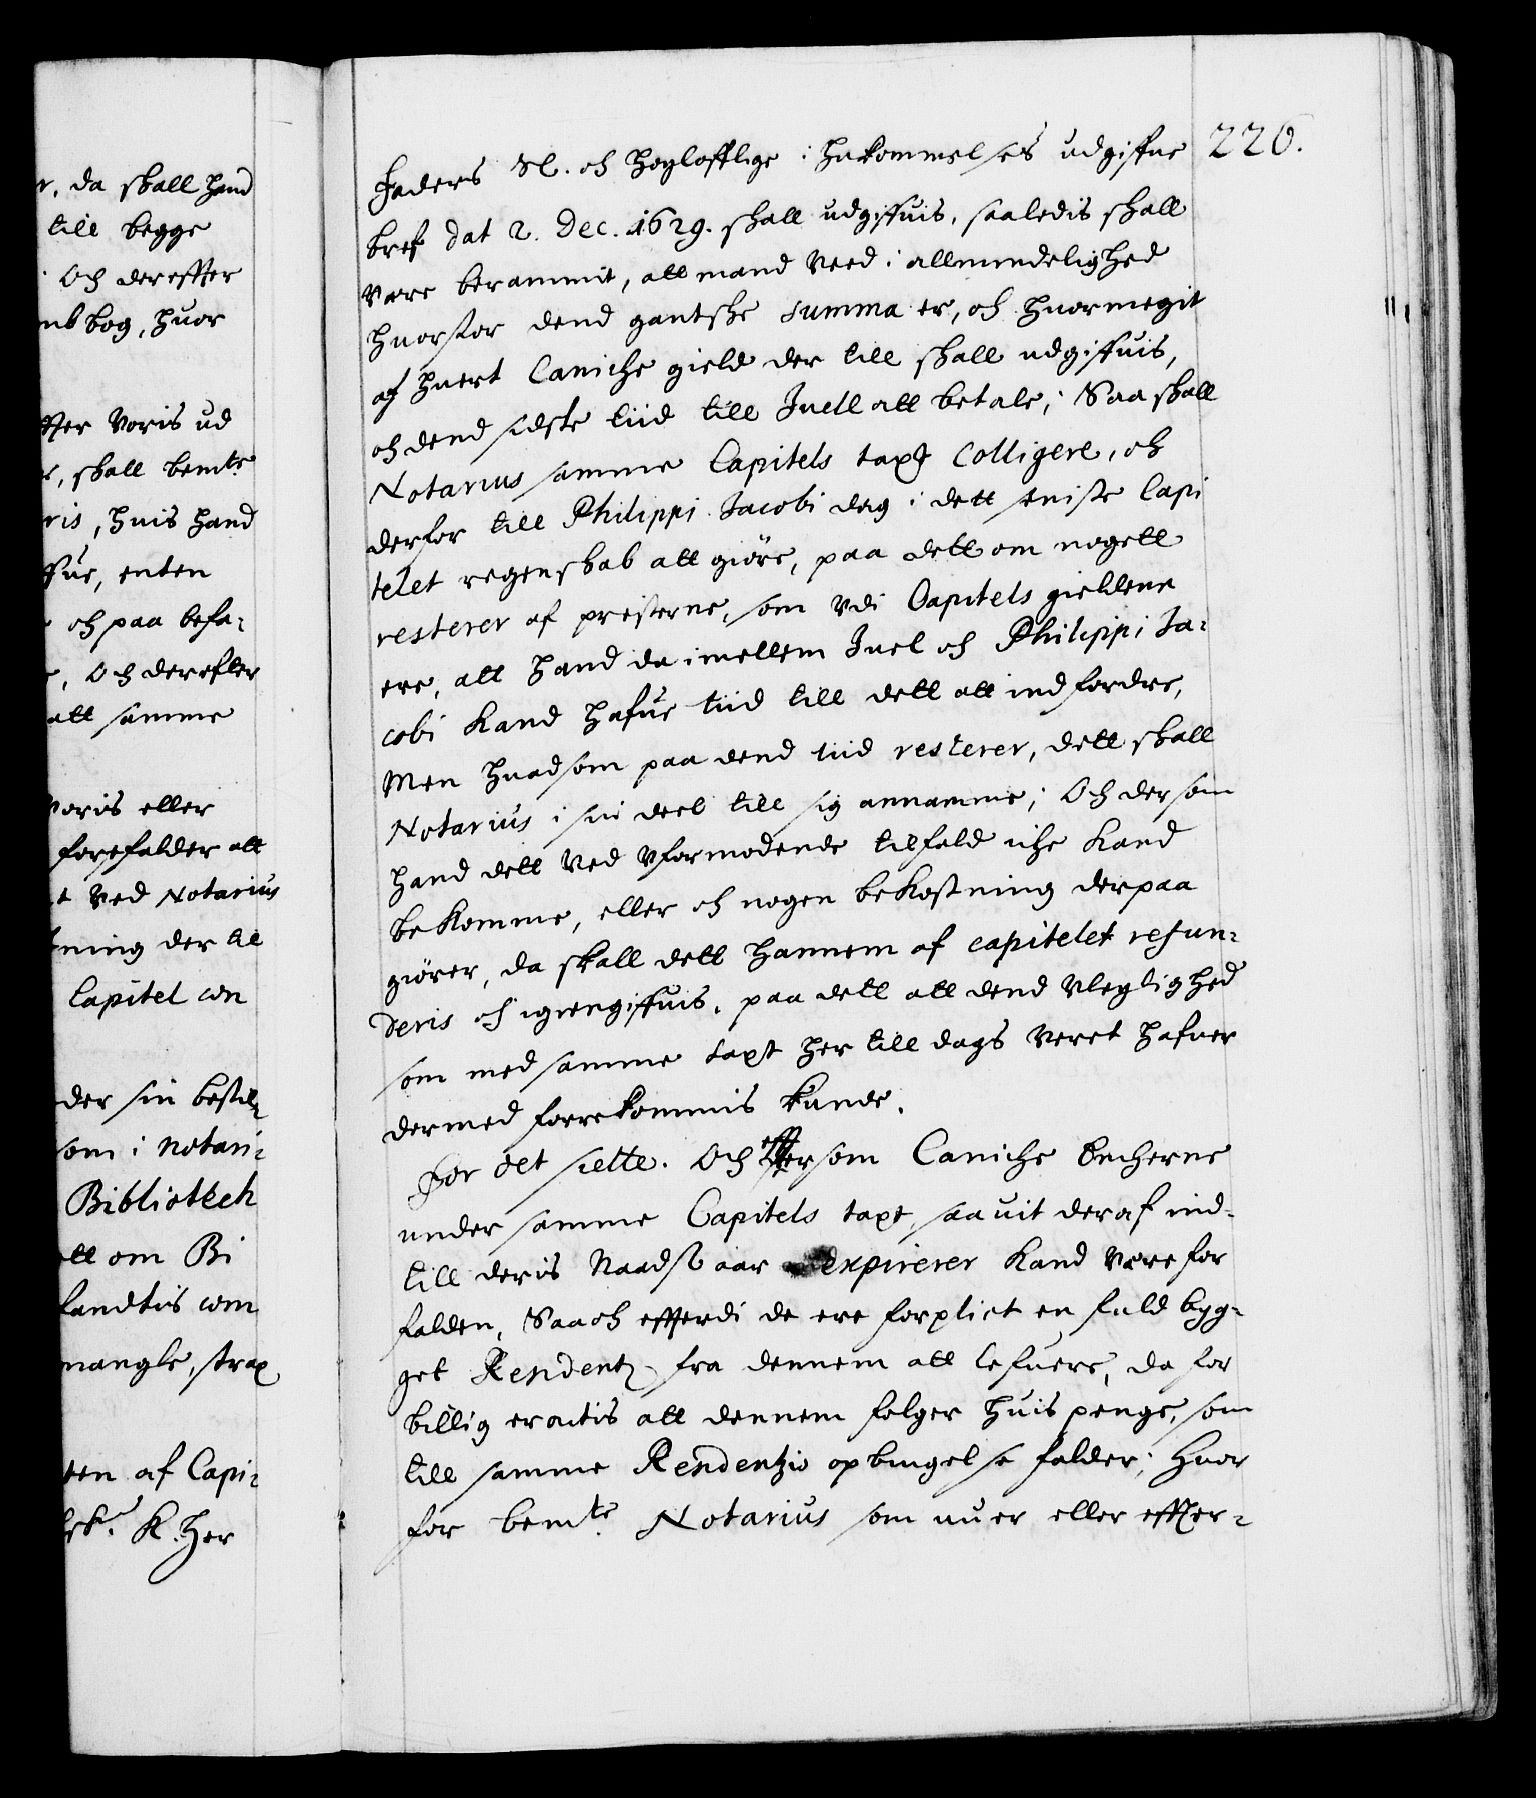 r, da skall hand
till begge
Och dereffter
nb bog, huor
ffter Voris ud
r, skall bemte
ris, huis hand
ffue, enten
och paa befa¬
, Och derefter
att samme
Voris eller
forefalder att
t Ved Notarius
tning der til
Capitel con
der sin bestil¬
som i Notari¬
Bibliotheck
ett om Bi
fandtis com
mangle, strax
ten af Capi¬
K. Her
226.
Faders Sl. och höglofflige ihukommelses udgiffne
bref dat 2. Dec. 1629. skall udgiffuis, saaledis skall
vere berammit, att mand Veed i allmindelighed
huorstor dend gantske summa er, och huormegit
af huert Caniche gield der till skall udgiffuis,
och dend sidste tiid till Juell att betale; Saa skall
Notarius samme Capitels taxt Colligere, och
derfor till Philippi Jacobi dag i dett seniste Capi
telet regenskab att giöre, paa dett om nogett
resterer af presterne, som Vdi Capitels gieldene
ere, att hand da imellem Juel och Philippi Ja¬
cobi Kand hafue tiid till dett att indfordre,
Men huadsom paa dend tiid resterer, dett skall
Notarius i sin deel till sig annamme; Och dersom
hand dett Ved Vformodende tilfald iche Kand
beKomme, eller och nogen beKostning derpaa
giörer, da skall dett hannem af capitelet refun¬
deris och igiengiffuis, paa dett att dend Vleglighed
som med samme taxt her till dags Veret hafuer
dermed forrekommis kunde.
For det siette. Och effttersom Caniche Enckerne
under samme Capitels taxt, saauit deraf ind¬
till deris Naadss aar expirerer Kand Vere for
falden, Saa och effterdi de ere forplict en fuld byg¬
get Residentz fra dennem att lefuere, da for
billig eractis att dennem fölger huis penge, som
till samme Residentzis opbiugelse falder; Huor
for bemte Notarius som nu er eller effter¬